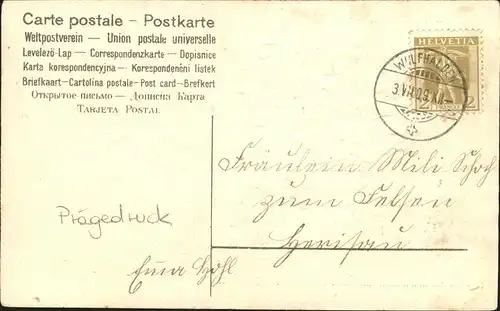 Carte postale – Postkarte
Weltpostverein – Union postale universelle
Levelező-Lap – Correspondenzkarte – Dopisnice
Karta korespondencyjna – Korespondenční lístek
Briefkaart – Cartolina postale – Post card – Brefkort
Открытое письмо – Дописна Карта
TARJETA POSTAL
HELVETIA
2 2
WOLFHALDEN
Fräulein Mili Schoch
zum Felsen
Herisau
Prägedruck
Emma Hohl